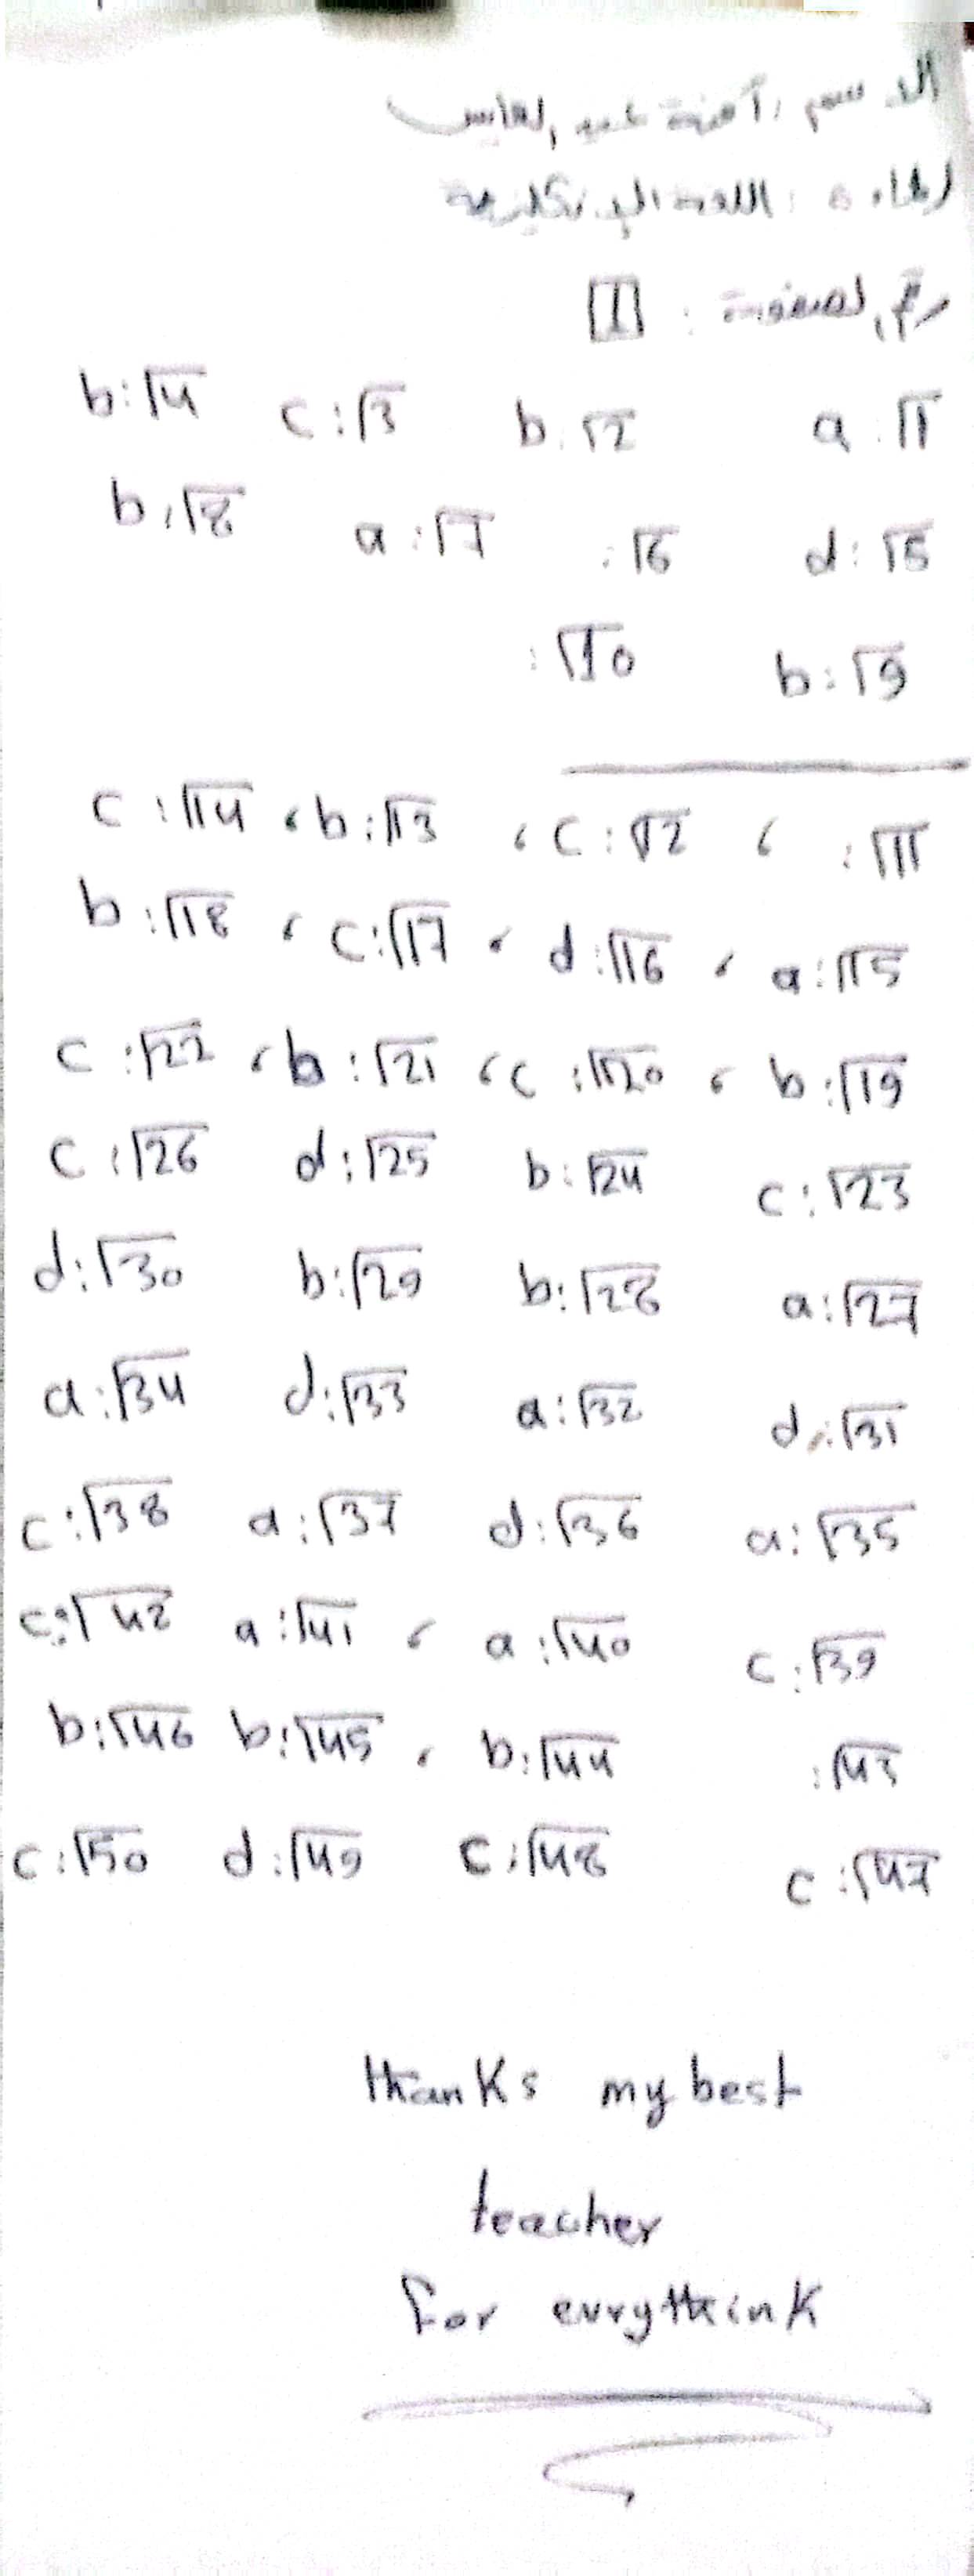 الاسم : آمنة عبد العباس
المادة : اللغة الإنكليزية
رقم الصفحة : 1
1: a 2: b 3: c 4: b
5: d 6: 7: a 8: b
9: b 10:
11: ، 12: c ، 13: b ، 14: c
15: a ، 16: d ، 17: c ، 18: b
19: b ، 20: c ، 21: b ، 22: c
23: c 24: b 25: d 26: c
27: a 28: b 29: b 30: d
31: d 32: a 33: d 34: a
35: a 36: d 37: a 38: c
39: c 40: a ، 41: a 42: c
43: 44: b ، 45: b 46: b
47: c 48: c 49: d 50: c
thanks my best
teacher
for evrythink